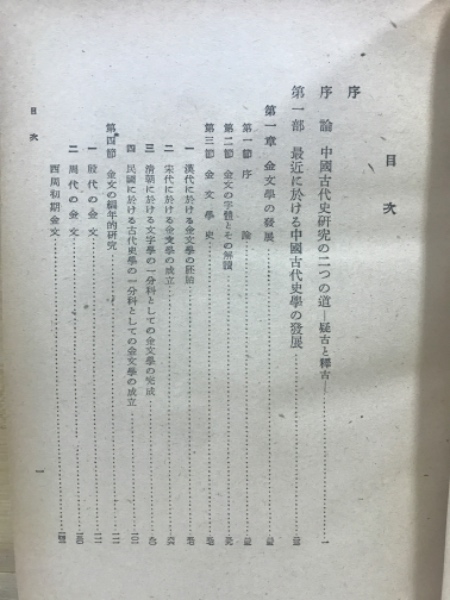 目次
序
序論 中國古代史研究の二つの道―疑古と釋古―……一
第一部 最近に於ける中國古代史學の發展
第一章 金文學の發展
第一節 序論
第二節 金文の字體とその解讀
第三節 金文學史
一 漢代に於ける金文學の胚胎
二 宋代に於ける金文學の成立
三 清朝に於ける文字學の一分科としての金文學の完成
四 民國に於ける古代史學の一分科としての金文學の成立
第四節 金文の編年的研究
一 殷代の金文
二 周代の金文
西周初期金文
目次
一